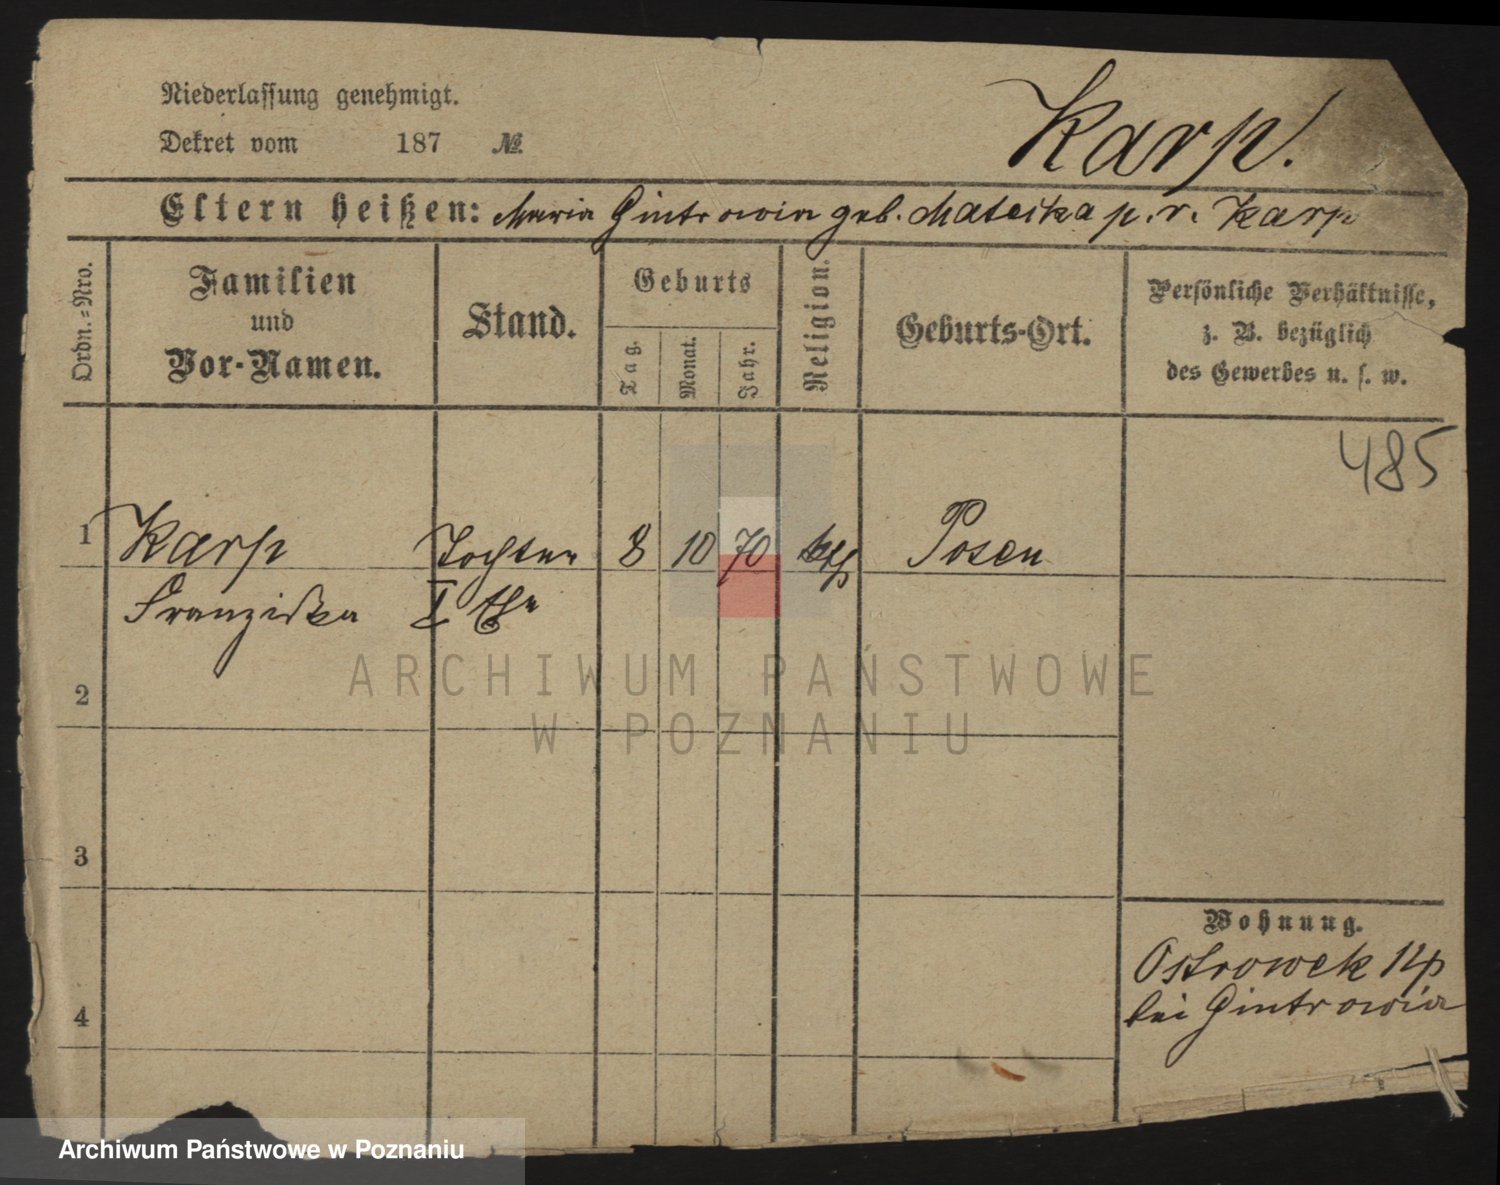 Niederlassung genehmigt.
Dekret vom 187 №
Karp.
Eltern heißen: Maria Gintrowia geb. Mateika p. r. Karp
Ordn.-Nro.
Familien
und
Vor-Namen.
Stand.
Geburts
Tag.
Monat.
Jahr.
Religion.
Geburts-Ort.
Persönliche Verhältnisse,
z. B. bezüglich
des Gewerbes u. s. w.
485
1 Karp Tochter 8 10 70 kth Posen
Franziska I
2
3
4
Wohnung.
Ostrowek
bei Gintrowia
ARCHIWUM PAŃSTWOWE
W POZNANIU
Archiwum Państwowe w Poznaniu